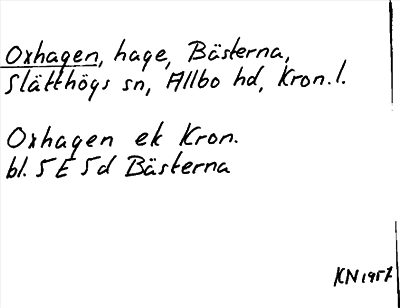 Oxhagen, hage, Bästerna,
Slätthögs sn, Allbo hd, Kron. l.
Oxhagen ek Kron.
bl. 5 E 5d Bästerna
KN 1957